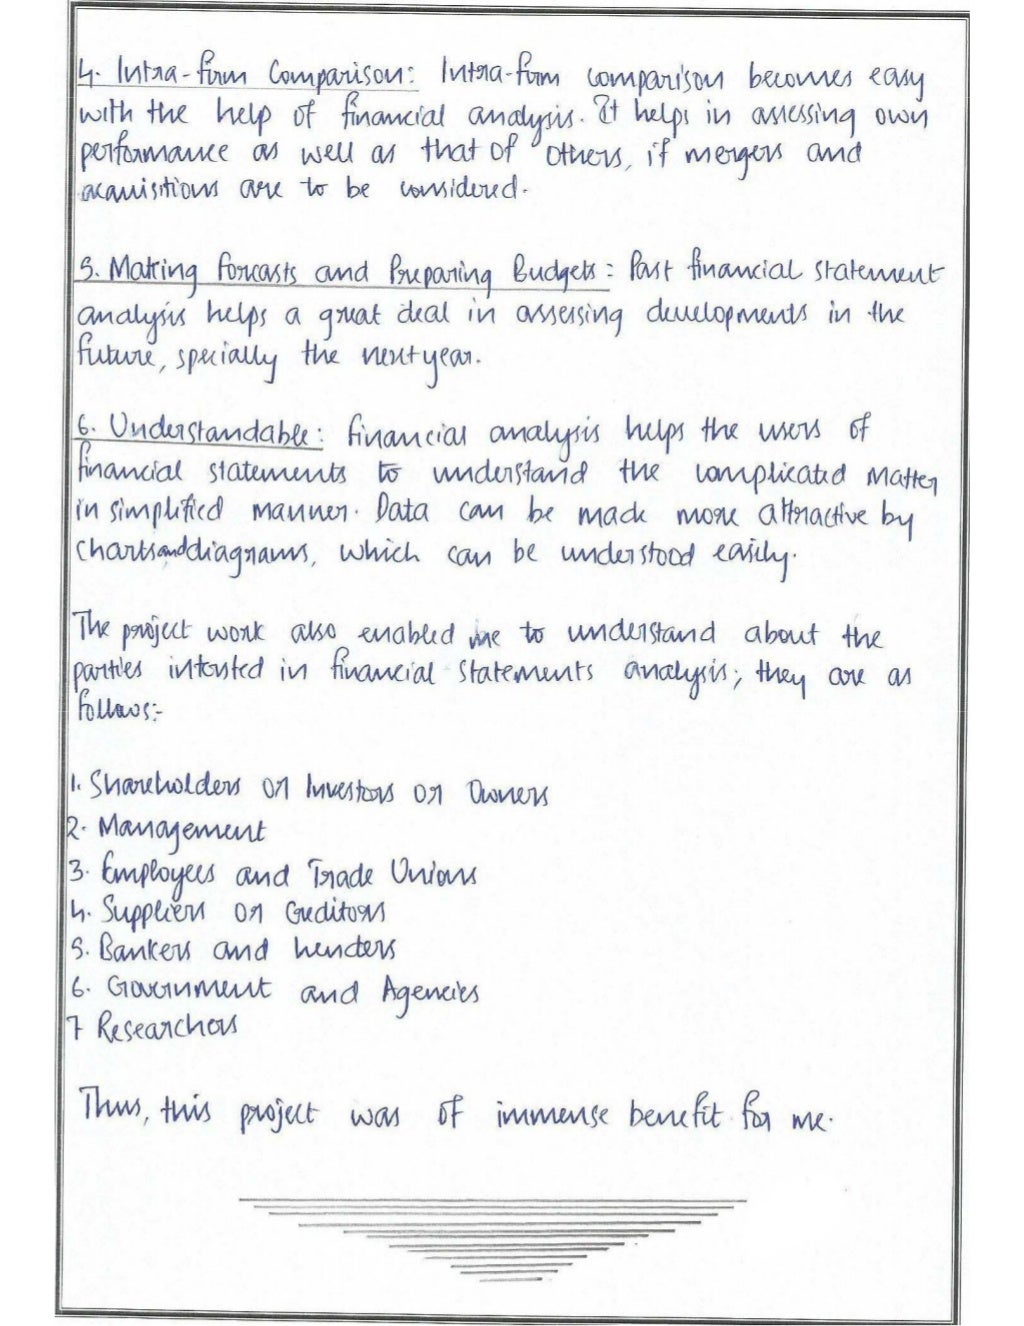 4. Intra-firm Comparison: Intra-firm comparison becomes easy
with the help of financial analysis. It helps in assessing own
performance as well as that of others, if mergers and
acquisitions are to be considered.
5. Making forcasts and Preparing Budgets: Past financial statement
analysis helps a great deal in assessing developments in the
future, specially the next year.
6. Understandable: financial analysis helps the users of
financial statements to understand the complicated matter
in simplified manner. Data can be made more attractive by
charts and diagrams, which can be understood easily.
The project work also enabled me to understand about the
parties intersted in financial statements analysis; they are as
follows:-
1. Shareholders or Investors or Owners
2. Management
3. Employees and Trade Unions
4. Suppliers or Creditors
5. Bankers and Lenders
6. Government and Agencies
7 Researchers
Thus, this project was of immense benefit for me.